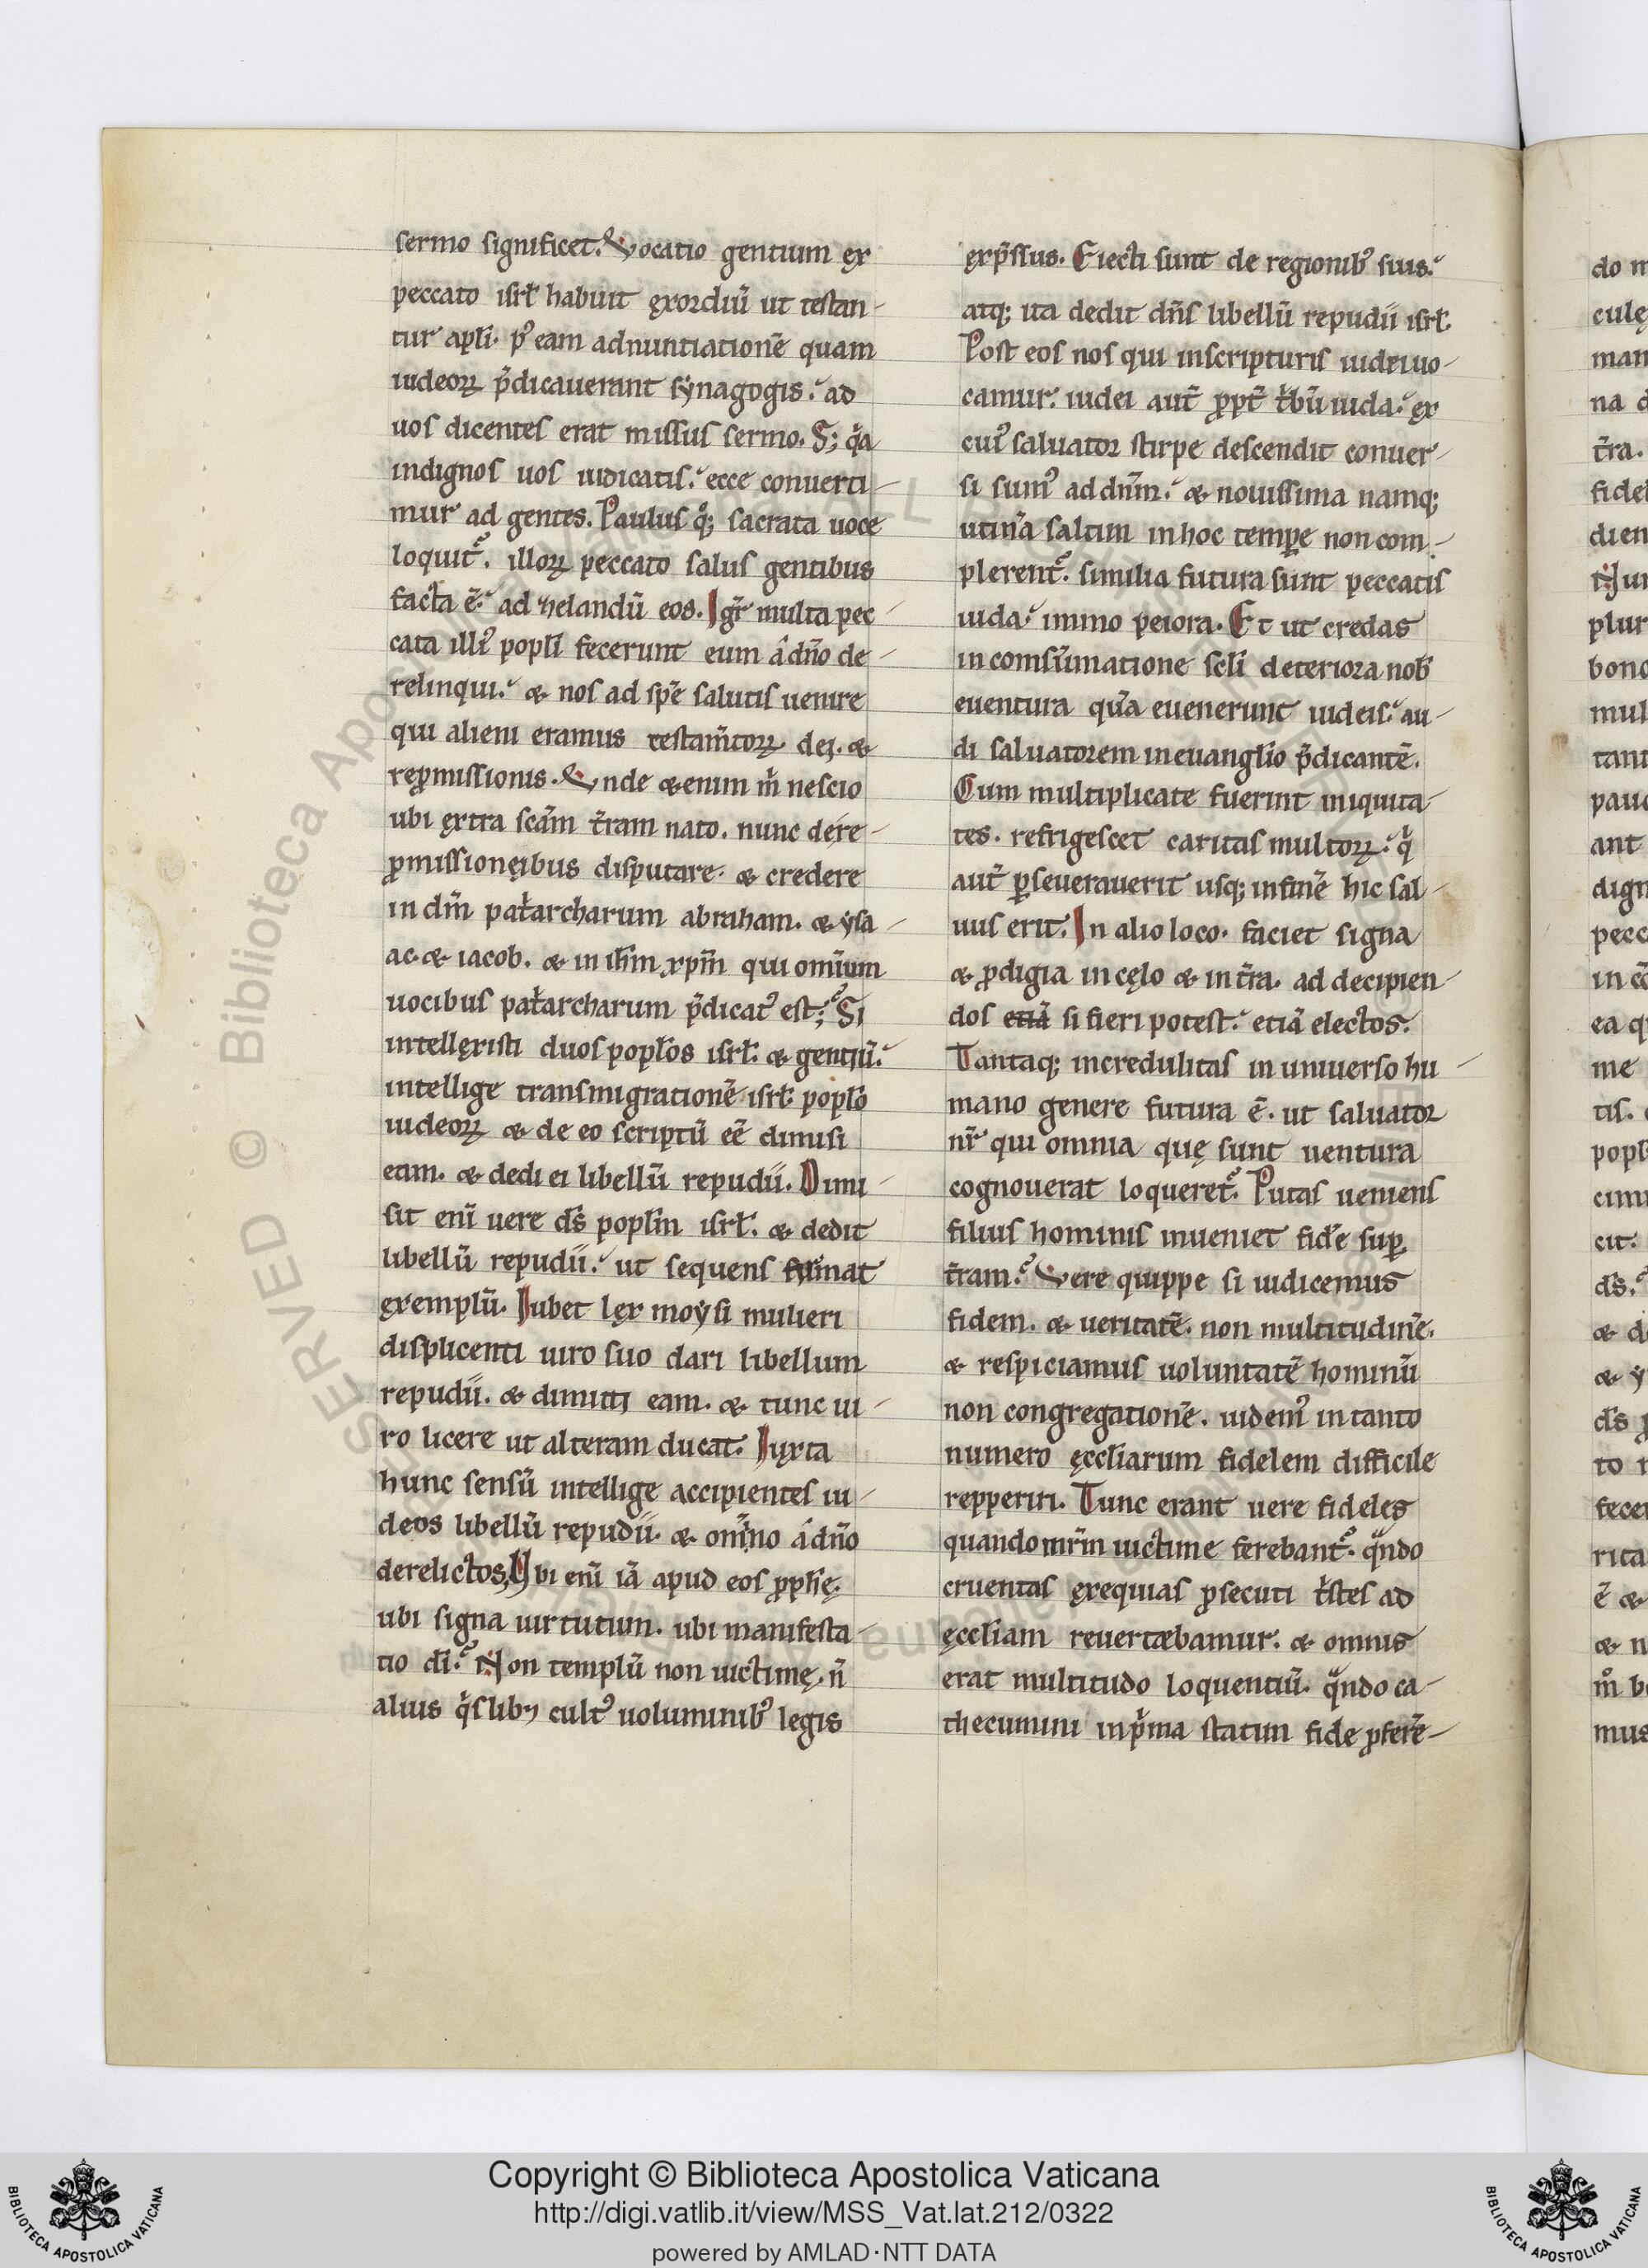 sermo significet. Vocatio gentium ex
peccato isrł habuit exordiū ut testan-
tur apłi. ꝑ eam adnuntiationē quam
iudeoꝝ p̄dicauerant synagogis. ad
uos dicentes erat missus sermo. S; qͣa
indignos uos iudicatis. ecce conuerti-
mur ad gentes. Paulus qͦ; sacrata uoce
loquit᷑. illoꝝ peccato salus gentibus
facta ē. ad helandū eos. Igr̄ multa pec-
cata illiꝰ popłi fecerunt eum a dn̄o de-
relinqui. & nos ad spē salutis uenire
qui alieni eramus testam̄toꝝ dei. &
reꝓmissionis. Unde &enim m̍ nescio
ubi extra scām t̄ram nato. nunc de re-
ꝓmissionęibus disputare. & credere
in dm̄ pat̍archarum abraham. & ysa-
ac. & iacob. & in ih̄m xp̄m qui omīum
uocibus pat̍archarum p̄dicatꝰ est; Si
intellexisti duos popłos isrł. & gentiū.
intellige transmigrationē isrł popło
iudeoꝝ & de eo scriptū eē dimisi
eam. & dedi ei libellū repudii. Dimi-
sit enī uere ds̄ popłm isrł. & dedit
libellū repudii. ut sequens firmat
exemplū. Iubet lex moysi mulieri
displicenti uiro suo dari libellum
repudii. & dimitti eam. & tunc ui-
ro licere ut alteram ducat. Iuxta
hunc sensū intellige accipientes iu-
deos libellū repudii. & omīno a dn̄o
derelictos, Ubi enī iā apud eos ꝓph̄ę.
ubi signa uirtutum. ubi manifesta-
tio dī. Non templū non uictimę. n̄
alius q̍slibꝫ cultꝰ uoluminibꝰ legis
exp̄ssus. Eiecti sunt de regionibꝰ suis.
atq; ita dedit dn̄s libellū repudii isrł.
Post eos nos qui in scripturis iudei uo-
camur. iudei aut̄ ꝓpt̄ t̍bū iuda. ex
cuiꝰ saluator stirpe descendit conuer-
si sumꝰ ad dn̄m. & nouissima namq;
utinā saltim in hoc temꝑe non com-
plerent᷑. similia futura sunt peccatis
iuda. immo peiora. Et ut credas
in comsūmatione scłi deteriora nob̄
euentura quā euenerunt iudeis. au-
di saluatorem in euanglio p̄dicantē.
Cum multiplicate fuerint iniquita-
tes. refrigescet caritas multoꝝ. q̍
aut̄ ꝑseuerauerit usq; in finē hic sal-
uus erit. In alio loco. faciet signa
& ꝓdigia in cęlo & in t̄ra. ad decipien-
dos etiā si fieri potest. etiā electos.
Tantaq; incredulitas in uniuerso hu-
mano genere futura ē. ut saluator
nr̄ qui omnia quę sunt uentura
cognouerat loqueret᷑. Putas ueniens
filius hominis inueniet fidē suꝑ
t̄ram. Vere quippe si iudicemus
fidem. & ueritatē. non multitudinē.
& respiciamus uoluntatē hominū
non congregationē. uidemꝰ in tanto
numero ęccłiarum fidelem difficile
repperiri. Tunc erant uere fideles
quando mr̄m uictime ferebant᷑. qͣndo
cruentas exequias ꝓsecuti t̍stes ad
ęccłiam reuertæbamur. & omnis
erat multitudo loquentiū. qͣndo ca-
thecumini in p̍ma statim fide ꝓferē-
do m
culę
man
na d
t̄ra.
fidel
dien
Nun
plur
bono
mul
tant
pauc
ant
dign
pecc
in cę
ea q
me
tis.
popł
cimi
cit.
ds̄.
& d
& y
ds̄ p
to n
fecer
rita
ē &
& n
m̊ b
mus
© Biblioteca Apostolica Vaticana
Copyright © Biblioteca Apostolica Vaticana
http://digi.vatlib.it/view/MSS_Vat.lat.212/0322
powered by AMLAD·NTT DATA
BIBLIOTECA APOSTOLICA VATICANA
BIBLIOTECA APOSTOLICA VATICANA